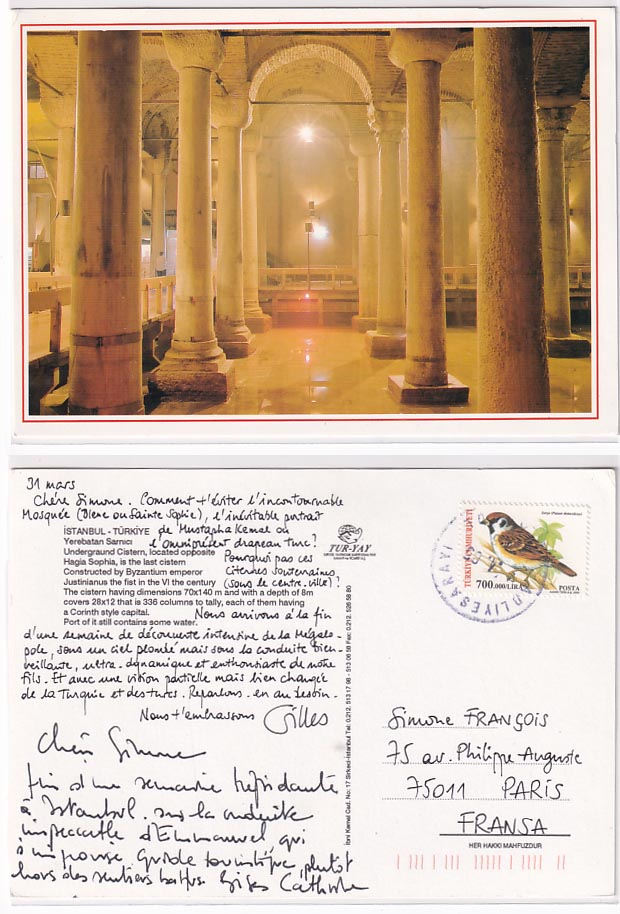 31 mars
Chère Simone. Comment t'éviter l'incontournable
Mosquée (Bleue ou Sainte Sophie), l'inévitable portrait
de Mustapha Kemal ou
l'omniprésent drapeau turc?
Pourquoi pas ces
Citernes Souterraines
(sous le centre-ville)?
Nous arrivons à la fin
d'une semaine de découverte intensive de la Mégalo-
pole, sous un ciel plombé mais sous la conduite bien-
veillante, ultra-dynamique et enthousiaste de notre
fils. Et avec une vision partielle mais bien changée
de la Turquie et des turcs. Reparlons-en au besoin.
Nous t'embrassons Gilles
İSTANBUL - TÜRKİYE
Yerebatan Sarnıcı
Undergraund Cistern, located opposite
Hagia Sophia, is the last cistern
Constructed by Byzantium emperor
Justinianus the fist in the VI the century
The cistern having dimensions 70x140 m and with a depth of 8m
covers 28x12 that is 336 columns to tally, each of them having
a Corinth style capital.
Port of it still contains some water.
TUR-YAY
Chère Simone
fin d'une semaine trépidante
à Istanbul sur la conduite
impeccable d'Emmanuel qui
s'improvise guide touristique plutôt
hors des sentiers battus. Bises Catherine
İbni Kemal Cad. No: 17 Sirkeci-İstanbul Tel: 0.212. 513 17 98 - 513 06 58 Fax: 0.212. 526 58 80
TÜRKİYE CUMHURİYETİ
700.000 LİRA
POSTA
ADLİYESARAYI
Simone FRANÇOIS
75 av. Philippe Auguste
75011 PARIS
FRANSA
HER HAKKI MAHFUZDUR